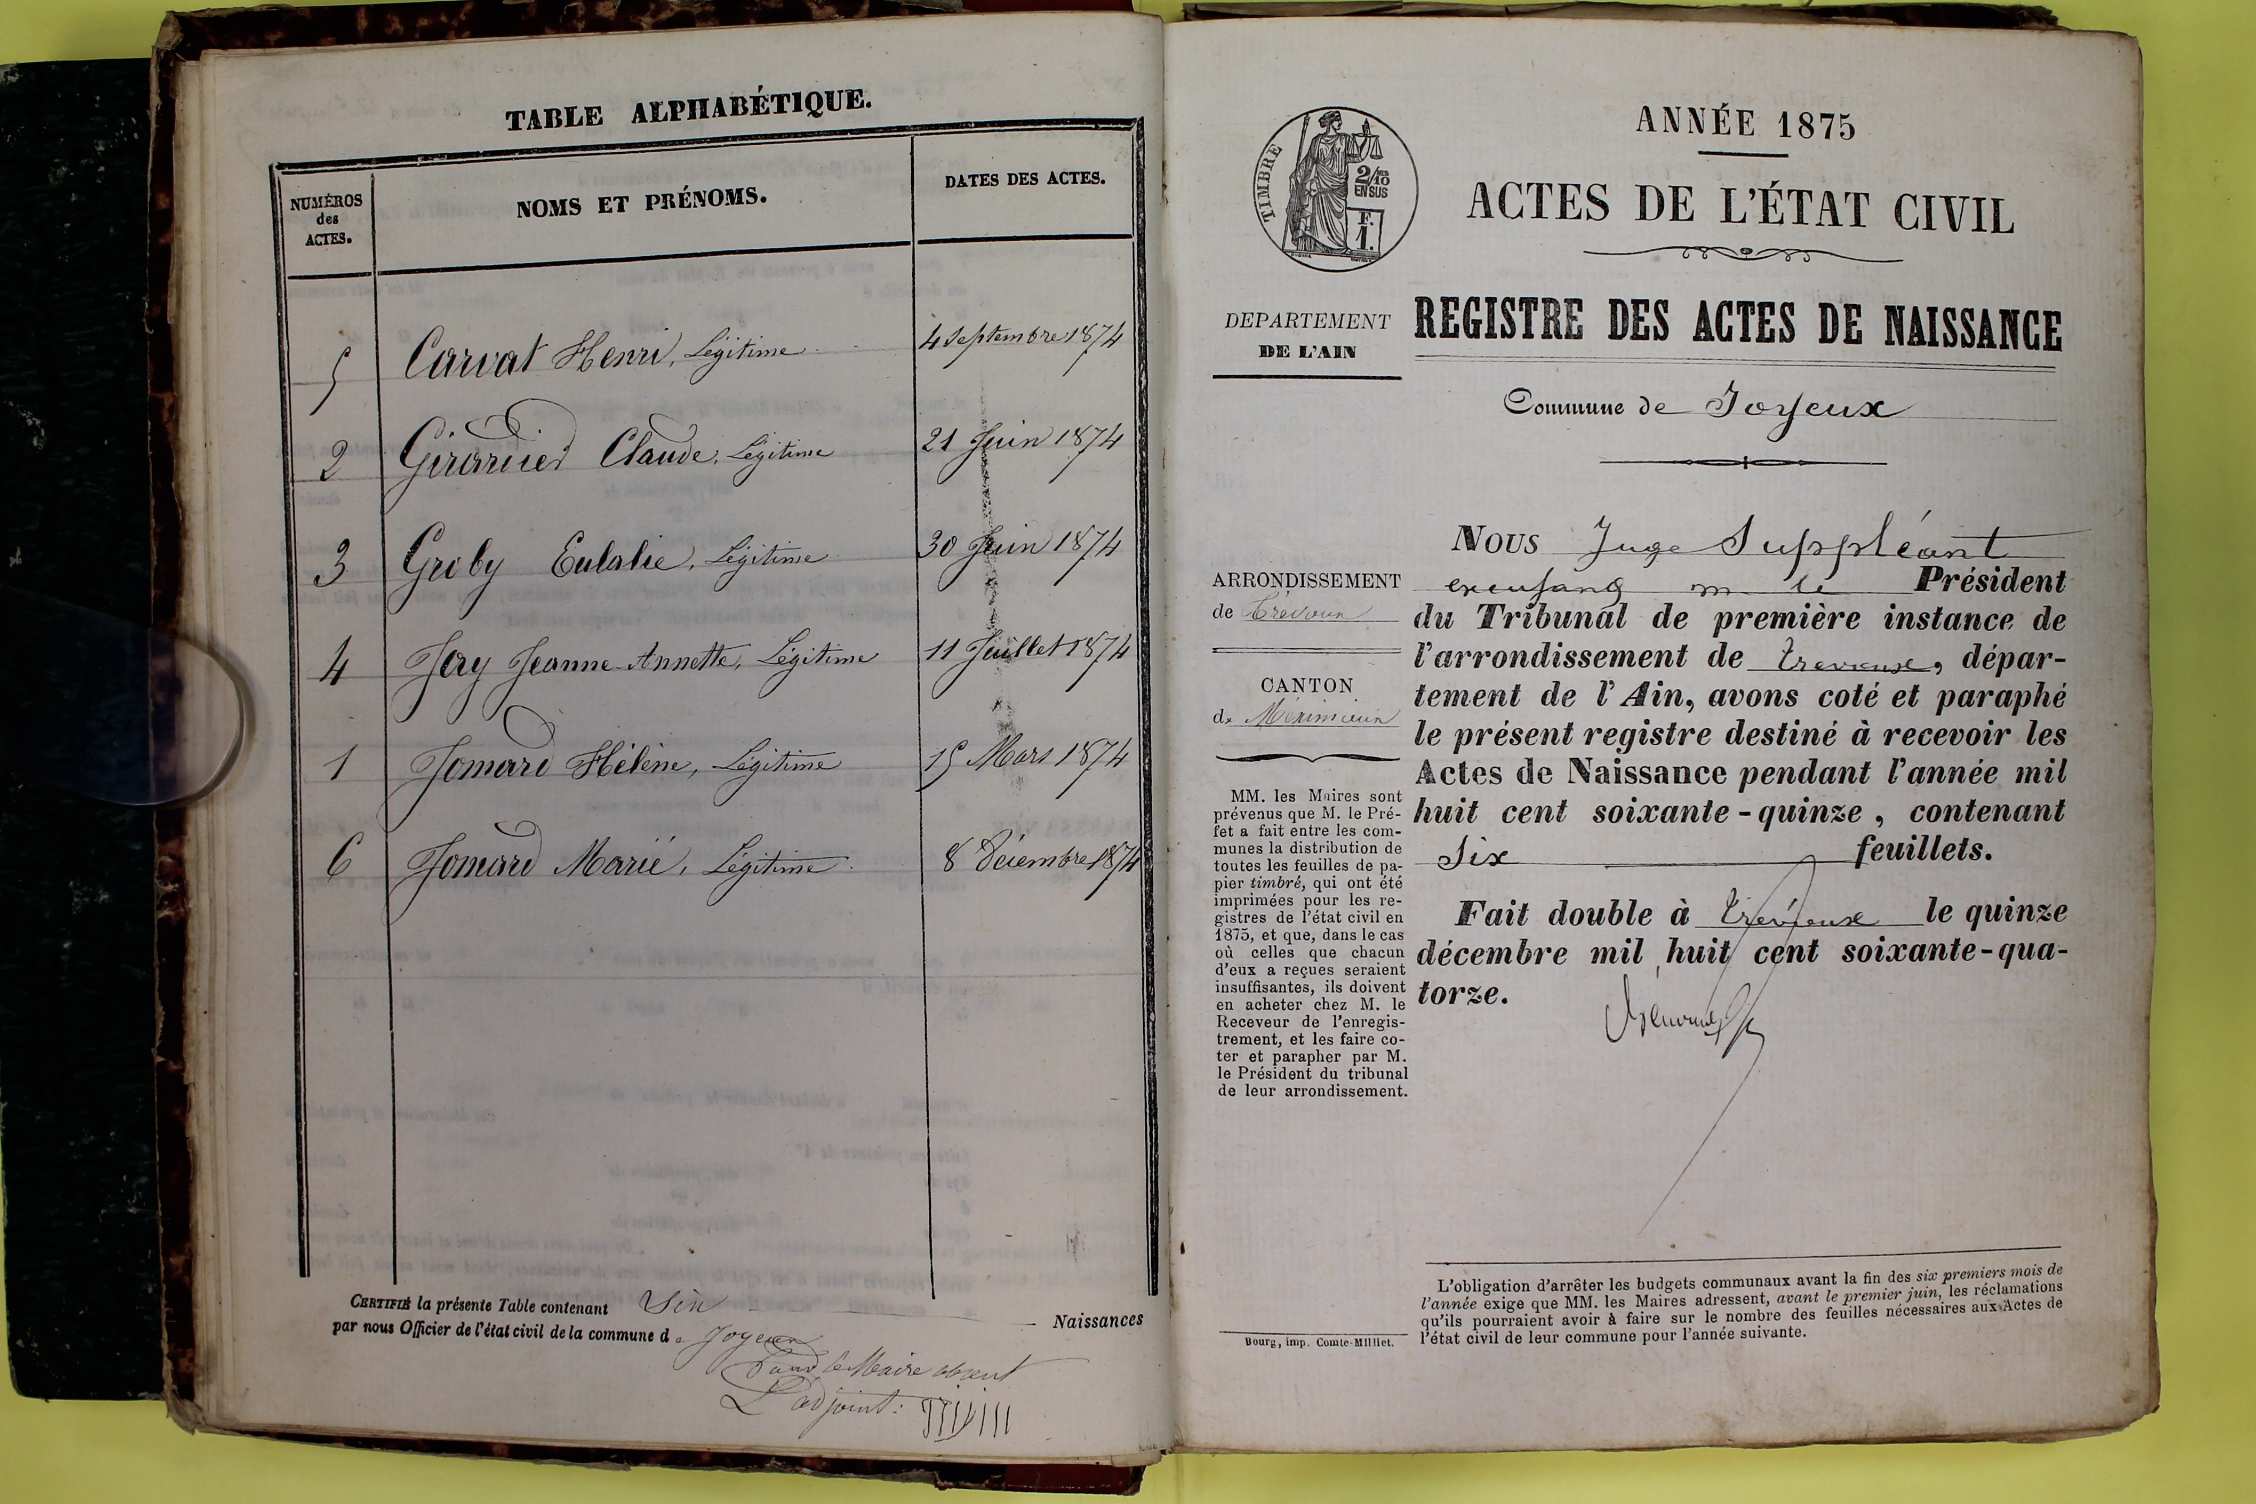 TABLE ALPHABÉTIQUE.
NUMÉROS des ACTES.
NOMS ET PRÉNOMS.
DATES DES ACTES.
5 Carvat Henri, Légitime 4 Septembre 1874
2 Girardier Claude, Légitime 21 Juin 1874
3 Groby Eulalie, Légitime 30 Juin 1874
4 Jay Jeanne-Annette, Légitime 11 Juillet 1874
1 Jomard Hélène, Légitime 15 Mars 1874
6 Jomard Marie, Légitime 8 Décembre 1874
CERTIFIÉ la présente Table contenant Six Naissances
par nous Officier de l'état civil de la commune de Joyeux
Pour le Maire absent
L'adjoint:
ANNÉE 1875
TIMBRE
2/10 EN SUS
F. 1.
ACTES DE L'ÉTAT CIVIL
DEPARTEMENT
DE L'AIN
REGISTRE DES ACTES DE NAISSANCE
Commune de Joyeux
ARRONDISSEMENT
de Trévoux
CANTON
de Meximieux
MM. les Maires sont
prévenus que M. le Pré-
fet a fait entre les com-
munes la distribution de
toutes les feuilles de pa-
pier timbré, qui ont été
imprimées pour les re-
gistres de l'état civil en
1875, et que, dans le cas
où celles que chacun
d'eux a reçues seraient
insuffisantes, ils doivent
en acheter chez M. le
Receveur de l'enregis-
trement, et les faire co-
ter et parapher par M.
le Président du tribunal
de leur arrondissement.
Bourg, imp. Comte-Milliet.
NOUS Juge Suppléant
m. le Président
du Tribunal de première instance de
l'arrondissement de Trevoux, dépar-
tement de l'Ain, avons coté et paraphé
le présent registre destiné à recevoir les
Actes de Naissance pendant l'année mil
huit cent soixante-quinze, contenant
Six feuillets.
Fait double à Trévoux le quinze
décembre mil huit cent soixante-qua-
torze.
L'obligation d'arrêter les budgets communaux avant la fin des six premiers mois de
l'année exige que MM. les Maires adressent, avant le premier juin, les réclamations
qu'ils pourraient avoir à faire sur le nombre des feuilles nécessaires aux Actes de
l'état civil de leur commune pour l'année suivante.